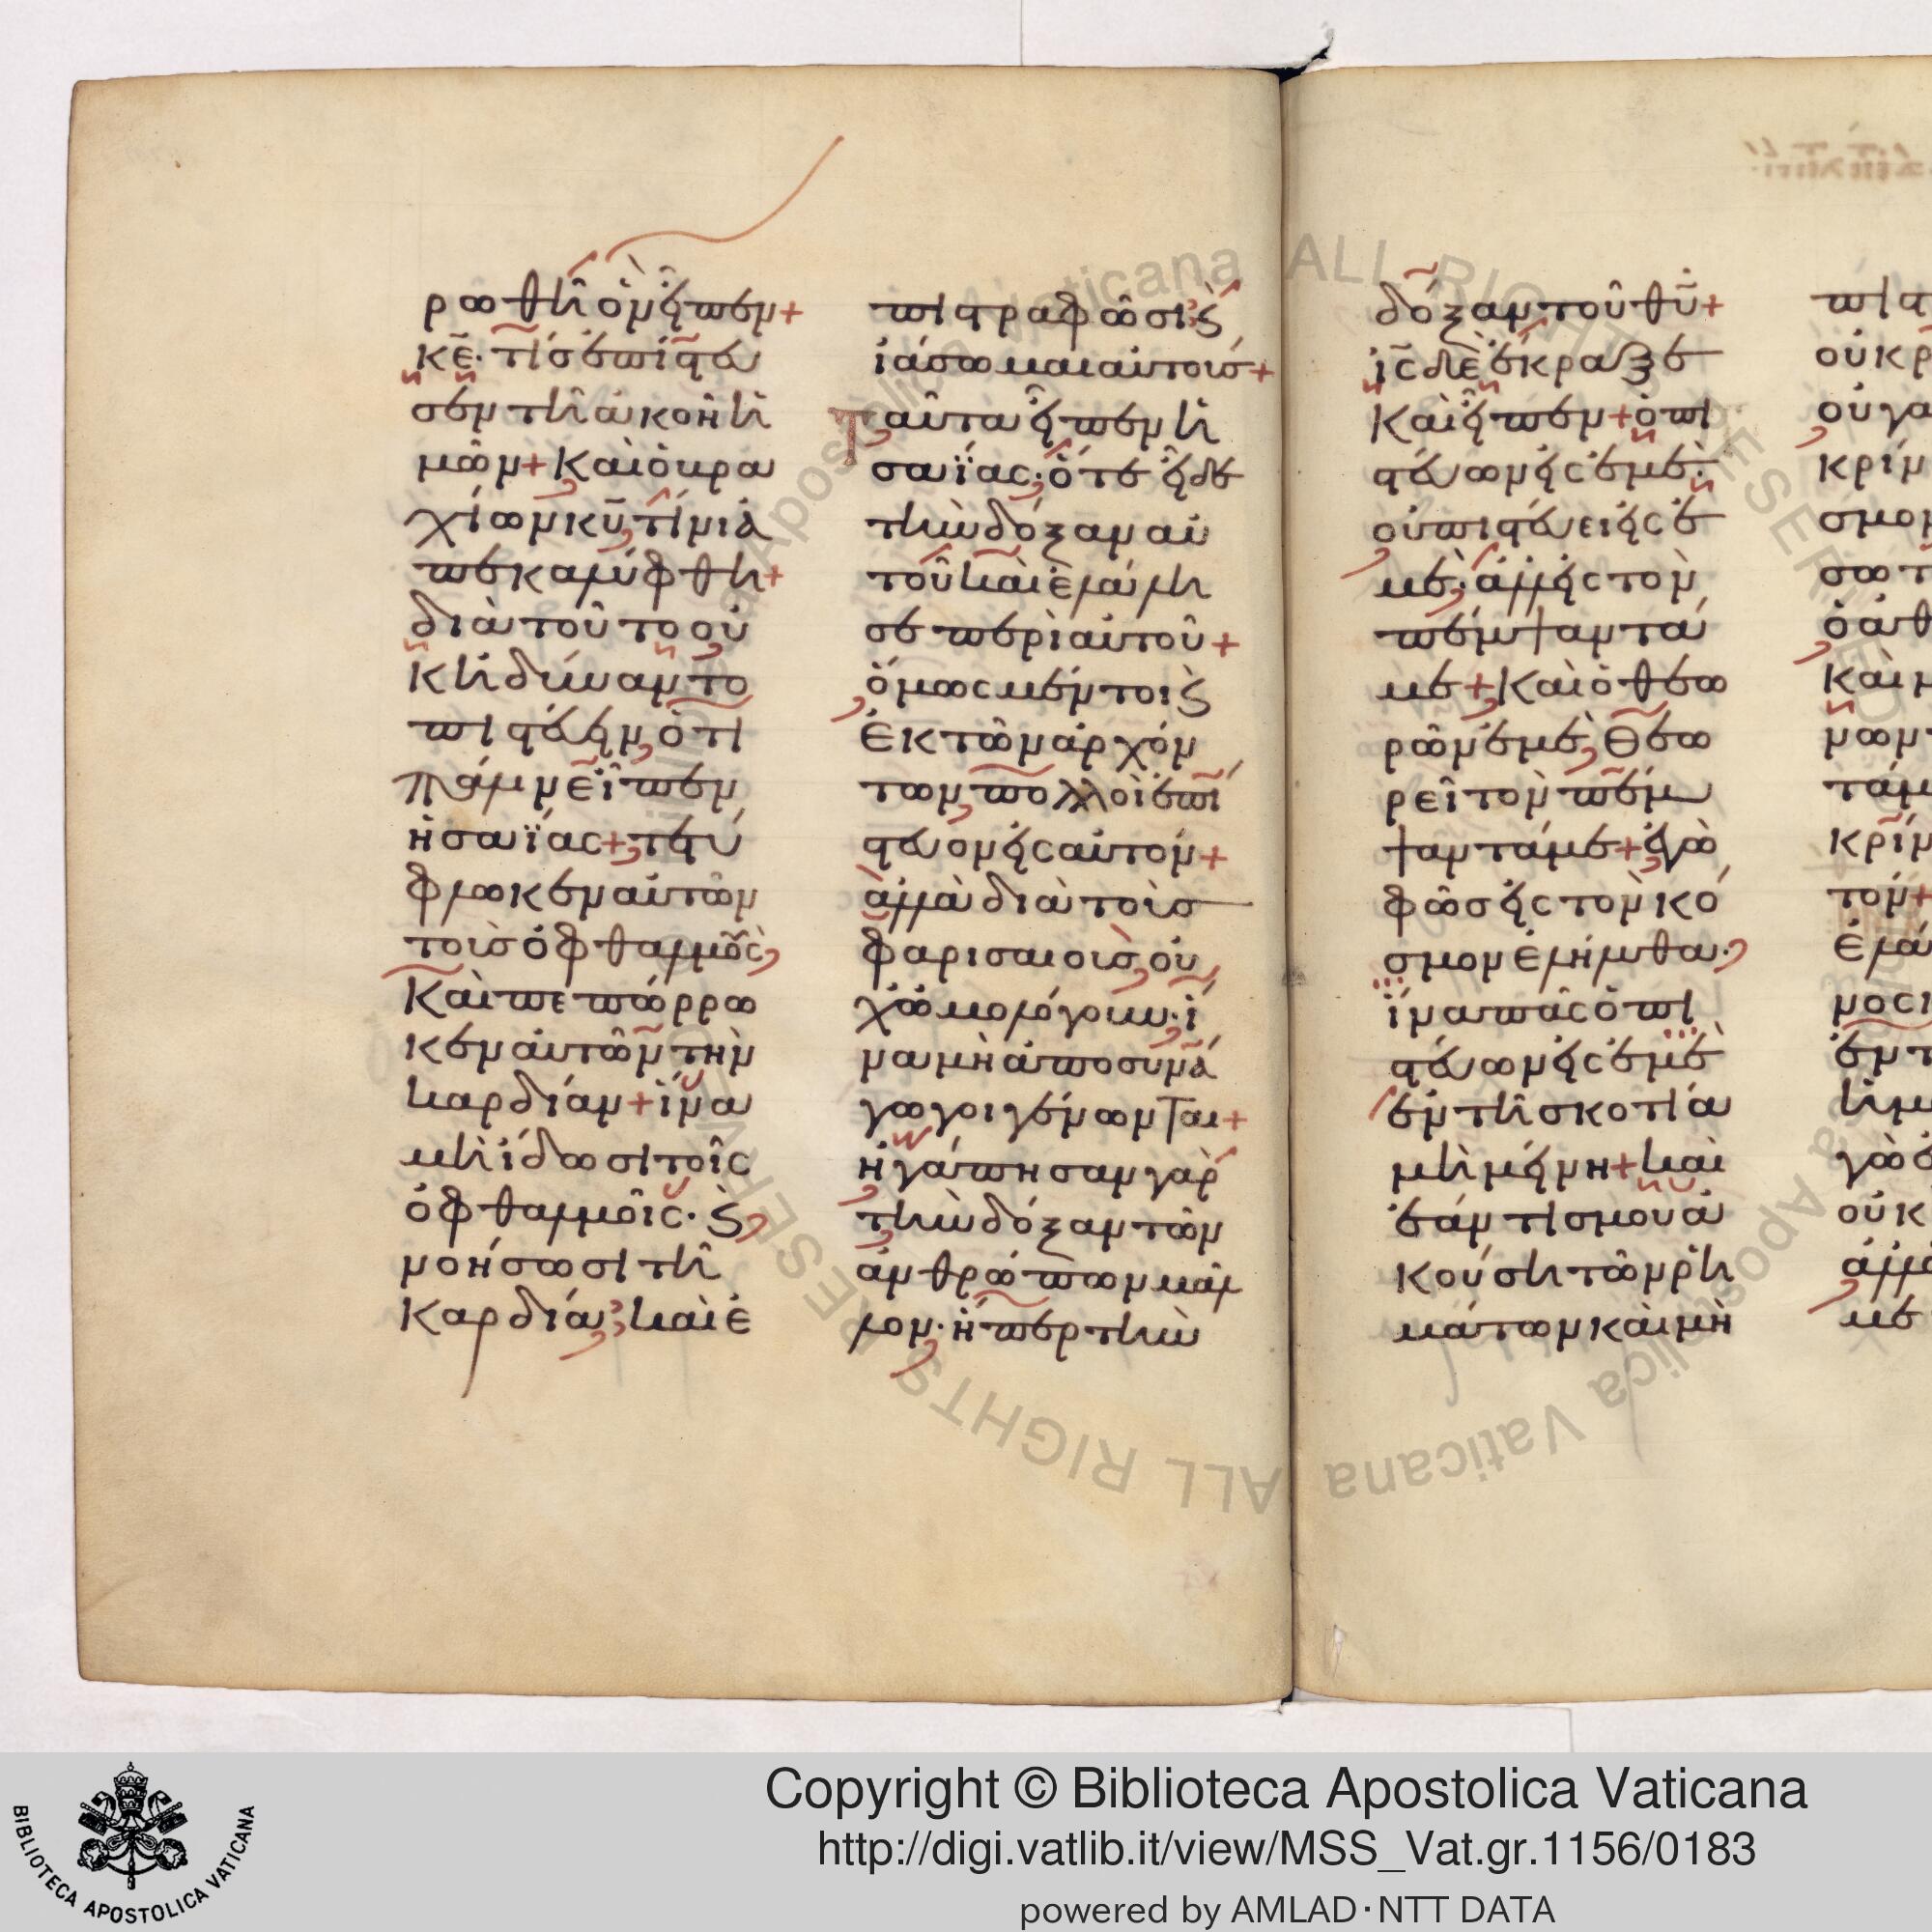 ρωθῆ ὃν εἶπεν+
κε̄. τίς ἐπίστευ
σεν τῆ ἀκοῆ ἡ
μῶν+ Καὶ ὁ βρα
χίων κῡ τίνι ἀ
πεκαλύφθη+
διὰ τοῦτο οὐ
κ ἠδύναντο
πιστεύειν, ὅτι
πάλιν εἶπεν
ἡσαΐας+ τετύ
φλωκεν αὐτῶν
τοὺς ὀφθαλμοὺς,
Καὶ πεπώρω
κεν αὐτῶν τὴν
καρδίαν+ ἵνα
μὴ ἴδωσι τοῖς
ὀφθαλμοῖς. καὶ
νοήσωσι τῆ
Καρδία, καὶ ἐ
πιστραφῶσι καὶ
ἰάσωμαι αὐτούσ+
Ταῦτα εἶπεν ἡ
σαΐας. ὅτε εἶδε
τὴν δόξαν αὐ
τοῦ καὶ ἐλάλη
σε περὶ αὐτοῦ+
ὅμως μέντοι καὶ
ἐκ τῶν ἀρχόν
των πολλοὶ ἐπί
στευσαν εἰς αὐτόν+
ἀλλὰ διὰ τοὺσ
φαρισαίους, οὐ
χ ὡμολόγουν. ἵ
να μὴ ἀποσυνά
γωγοι γένωνται+
ἠγάπησαν γὰρ
τὴν δόξαν τῶν
ἀνθρώπων μᾶλ
λον. ἤπερ τὴν
δόξαν τοῦ θῡ+
ις̄ δὲ ἔκραξε
Καὶ εἶπεν+ ὁ πι
στεύων εἰς ἐμὲ.
οὐ πιστεύει εἰς ἐ
μὲ. ἀλλ εἰς τὸν
πέμψαντά
με+ Καὶ ὁ θεω
ρῶν ἐμὲ, θεω
ρεῖ τὸν πέμ
ψαντά με+ ἐγὼ
φῶς εἰς τὸν κό
σμον ἐλήλυθα.
ἵνα πᾶς ὁ πι
στεύων εἰς ἐμὲ
ἐν τῆ σκοτία
μὴ μείνη+ καὶ
ἐάν τίς μου ἀ
κούση τῶν ῥη
μάτων καὶ μὴ
Copyright © Biblioteca Apostolica Vaticana
http://digi.vatlib.it/view/MSS_Vat.gr.1156/0183
powered by AMLAD·NTT DATA
BIBLIOTECA APOSTOLICA VATICANA